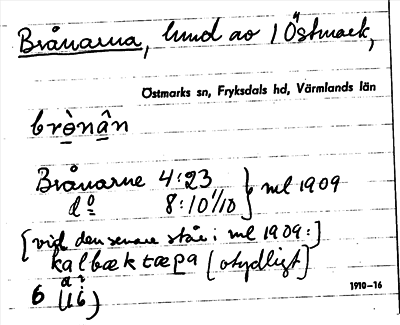 Brånarna, lund av / Östmark,
Östmarks sn, Fryksdals hd, Värmlands län
brònân
Brånarne 4:23 } ml 1909
do 8:10 1/10
[vid den senare står i ml 1909:]
kalbæktæpa [otydligt]
6 (16)
1910-16